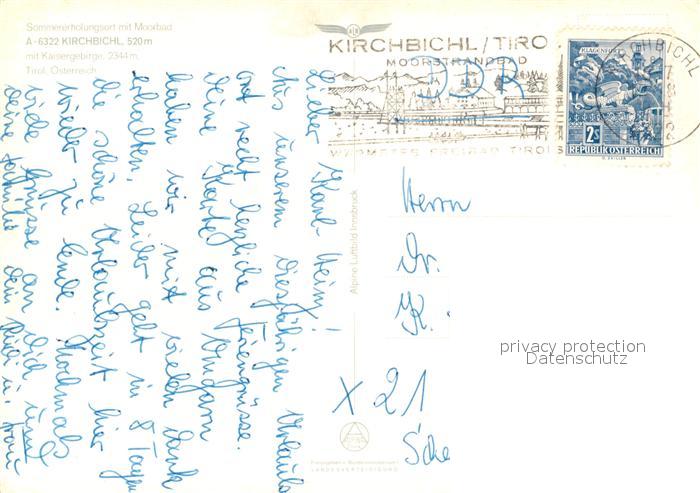 Sommererholungsort mit Moorbad
A-6322 KIRCHBICHL, 520 m
mit Kaisergebirge, 2344 m,
Tirol, Österreich
KIRCHBICHL/TIRO
MOORSTRANDBAD
WÄRMSTES FREIBAD TIROLS
KLAGENFURT
2S
REPUBLIK ÖSTERREICH
Lieber Karl-Heinz!
Aus unserem diesjährigen Urlaubs
ort recht herzliche Feriengrüsse.
Deine Karte aus Ungarn
haben wir mit vielen Dank
erhalten. Leider geht in 8 Tagen
die schöne Urlaubszeit hier
wieder zu Ende. Nochmals
viele Grüsse an Dich und
deine Familie dein u. Frau
Alpine Luftbild Innsbruck
Herrn
Dr.
K.
x 21
privacy protection
Datenschutz
LANDESVERTEIDIGUNG